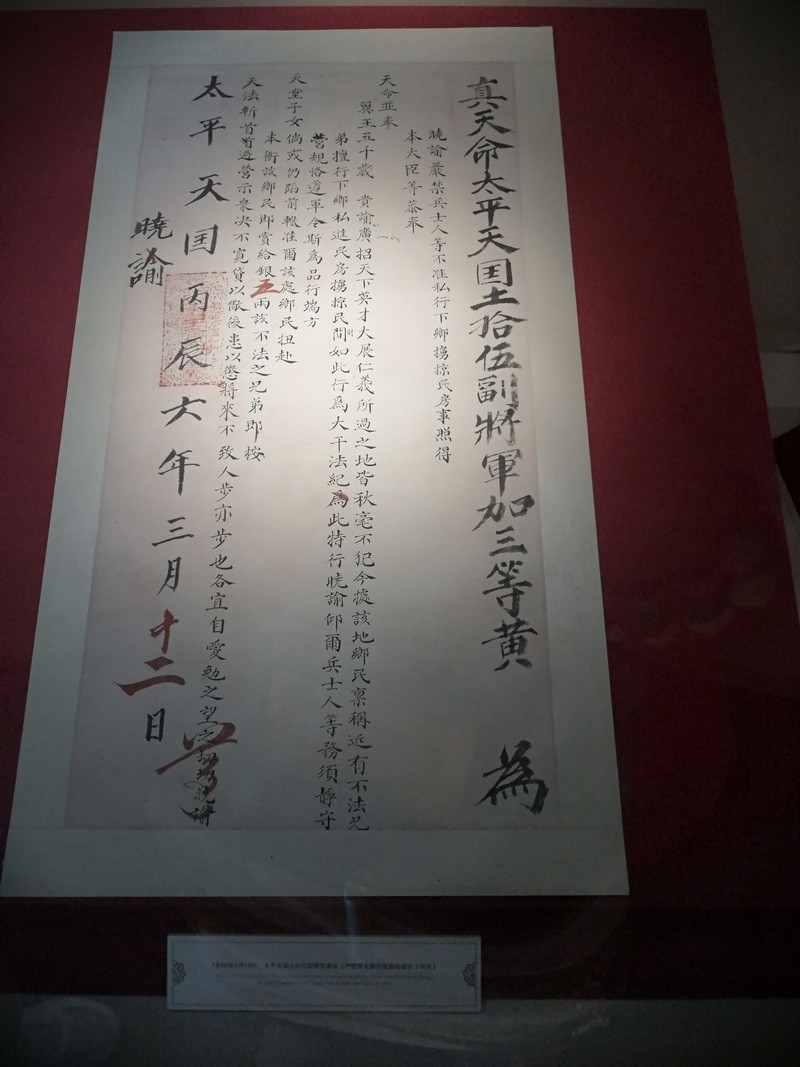 真天命太平天囯土拾伍副將軍加三等黄　為
曉諭嚴禁兵士人等不准私行下鄉擄掠民房事照得
本大臣等恭奉
天命並奉
翼王五千歲　貴諭廣招天下英才大展仁義所過之地皆秋毫不犯今據該地鄉民稟稱近有不法兄
弟擅行下鄉私進民房擄掠民間如此行為大干法紀為此特行曉諭仰爾兵士人等務須靜守
營規恪遵軍令斯為品行端方
天堂子女倘或仍蹈前轍准爾該處鄉民扭赴
本衙該鄉民即賞給銀五兩該不法之兄弟即按
天法斬首首遊營示衆决不寬貸以儆後患以懲將來不致人步亦步也各宜自愛勉之望之切切曉諭
太平天囯丙辰六年三月十二日
曉諭